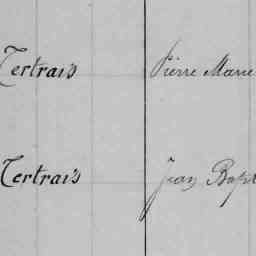 Tertrais Pierre Marie
Tertrais Jean Bapt